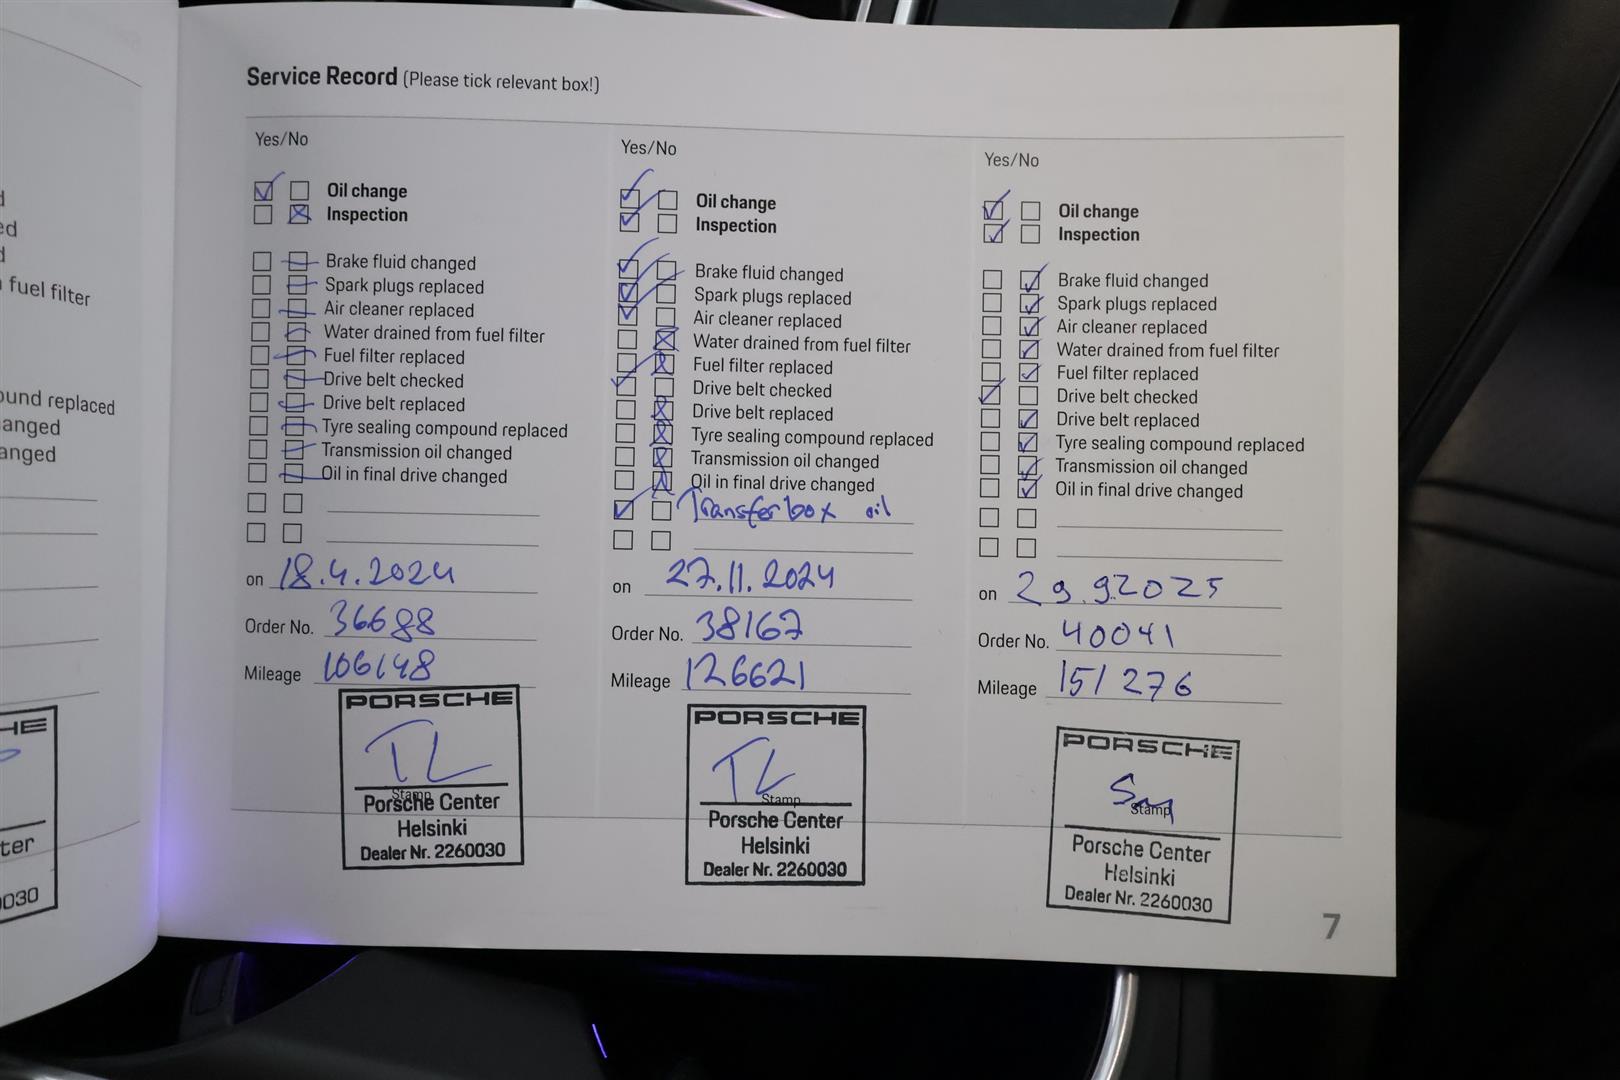 fuel filter
ound replaced
anged
anged
HE
ter
0030
Service Record (Please tick relevant box!)
Yes/No
Oil change
Inspection
Brake fluid changed
Spark plugs replaced
Air cleaner replaced
Water drained from fuel filter
Fuel filter replaced
Drive belt checked
Drive belt replaced
Tyre sealing compound replaced
Transmission oil changed
Oil in final drive changed
on 18.4.2024
Order No. 36688
Mileage 106148
PORSCHE
TL
Stamp
Porsche Center
Helsinki
Dealer Nr. 2260030
Yes/No
Oil change
Inspection
Brake fluid changed
Spark plugs replaced
Air cleaner replaced
Water drained from fuel filter
Fuel filter replaced
Drive belt checked
Drive belt replaced
Tyre sealing compound replaced
Transmission oil changed
Oil in final drive changed
Transferbox oil
on 27.11.2024
Order No. 38167
Mileage 126621
PORSCHE
TL
Stamp
Porsche Center
Helsinki
Dealer Nr. 2260030
Yes/No
Oil change
Inspection
Brake fluid changed
Spark plugs replaced
Air cleaner replaced
Water drained from fuel filter
Fuel filter replaced
Drive belt checked
Drive belt replaced
Tyre sealing compound replaced
Transmission oil changed
Oil in final drive changed
on 29.9.2025
Order No. 40041
Mileage 151 276
PORSCHE
Stamp
Porsche Center
Helsinki
Dealer Nr. 2260030
7